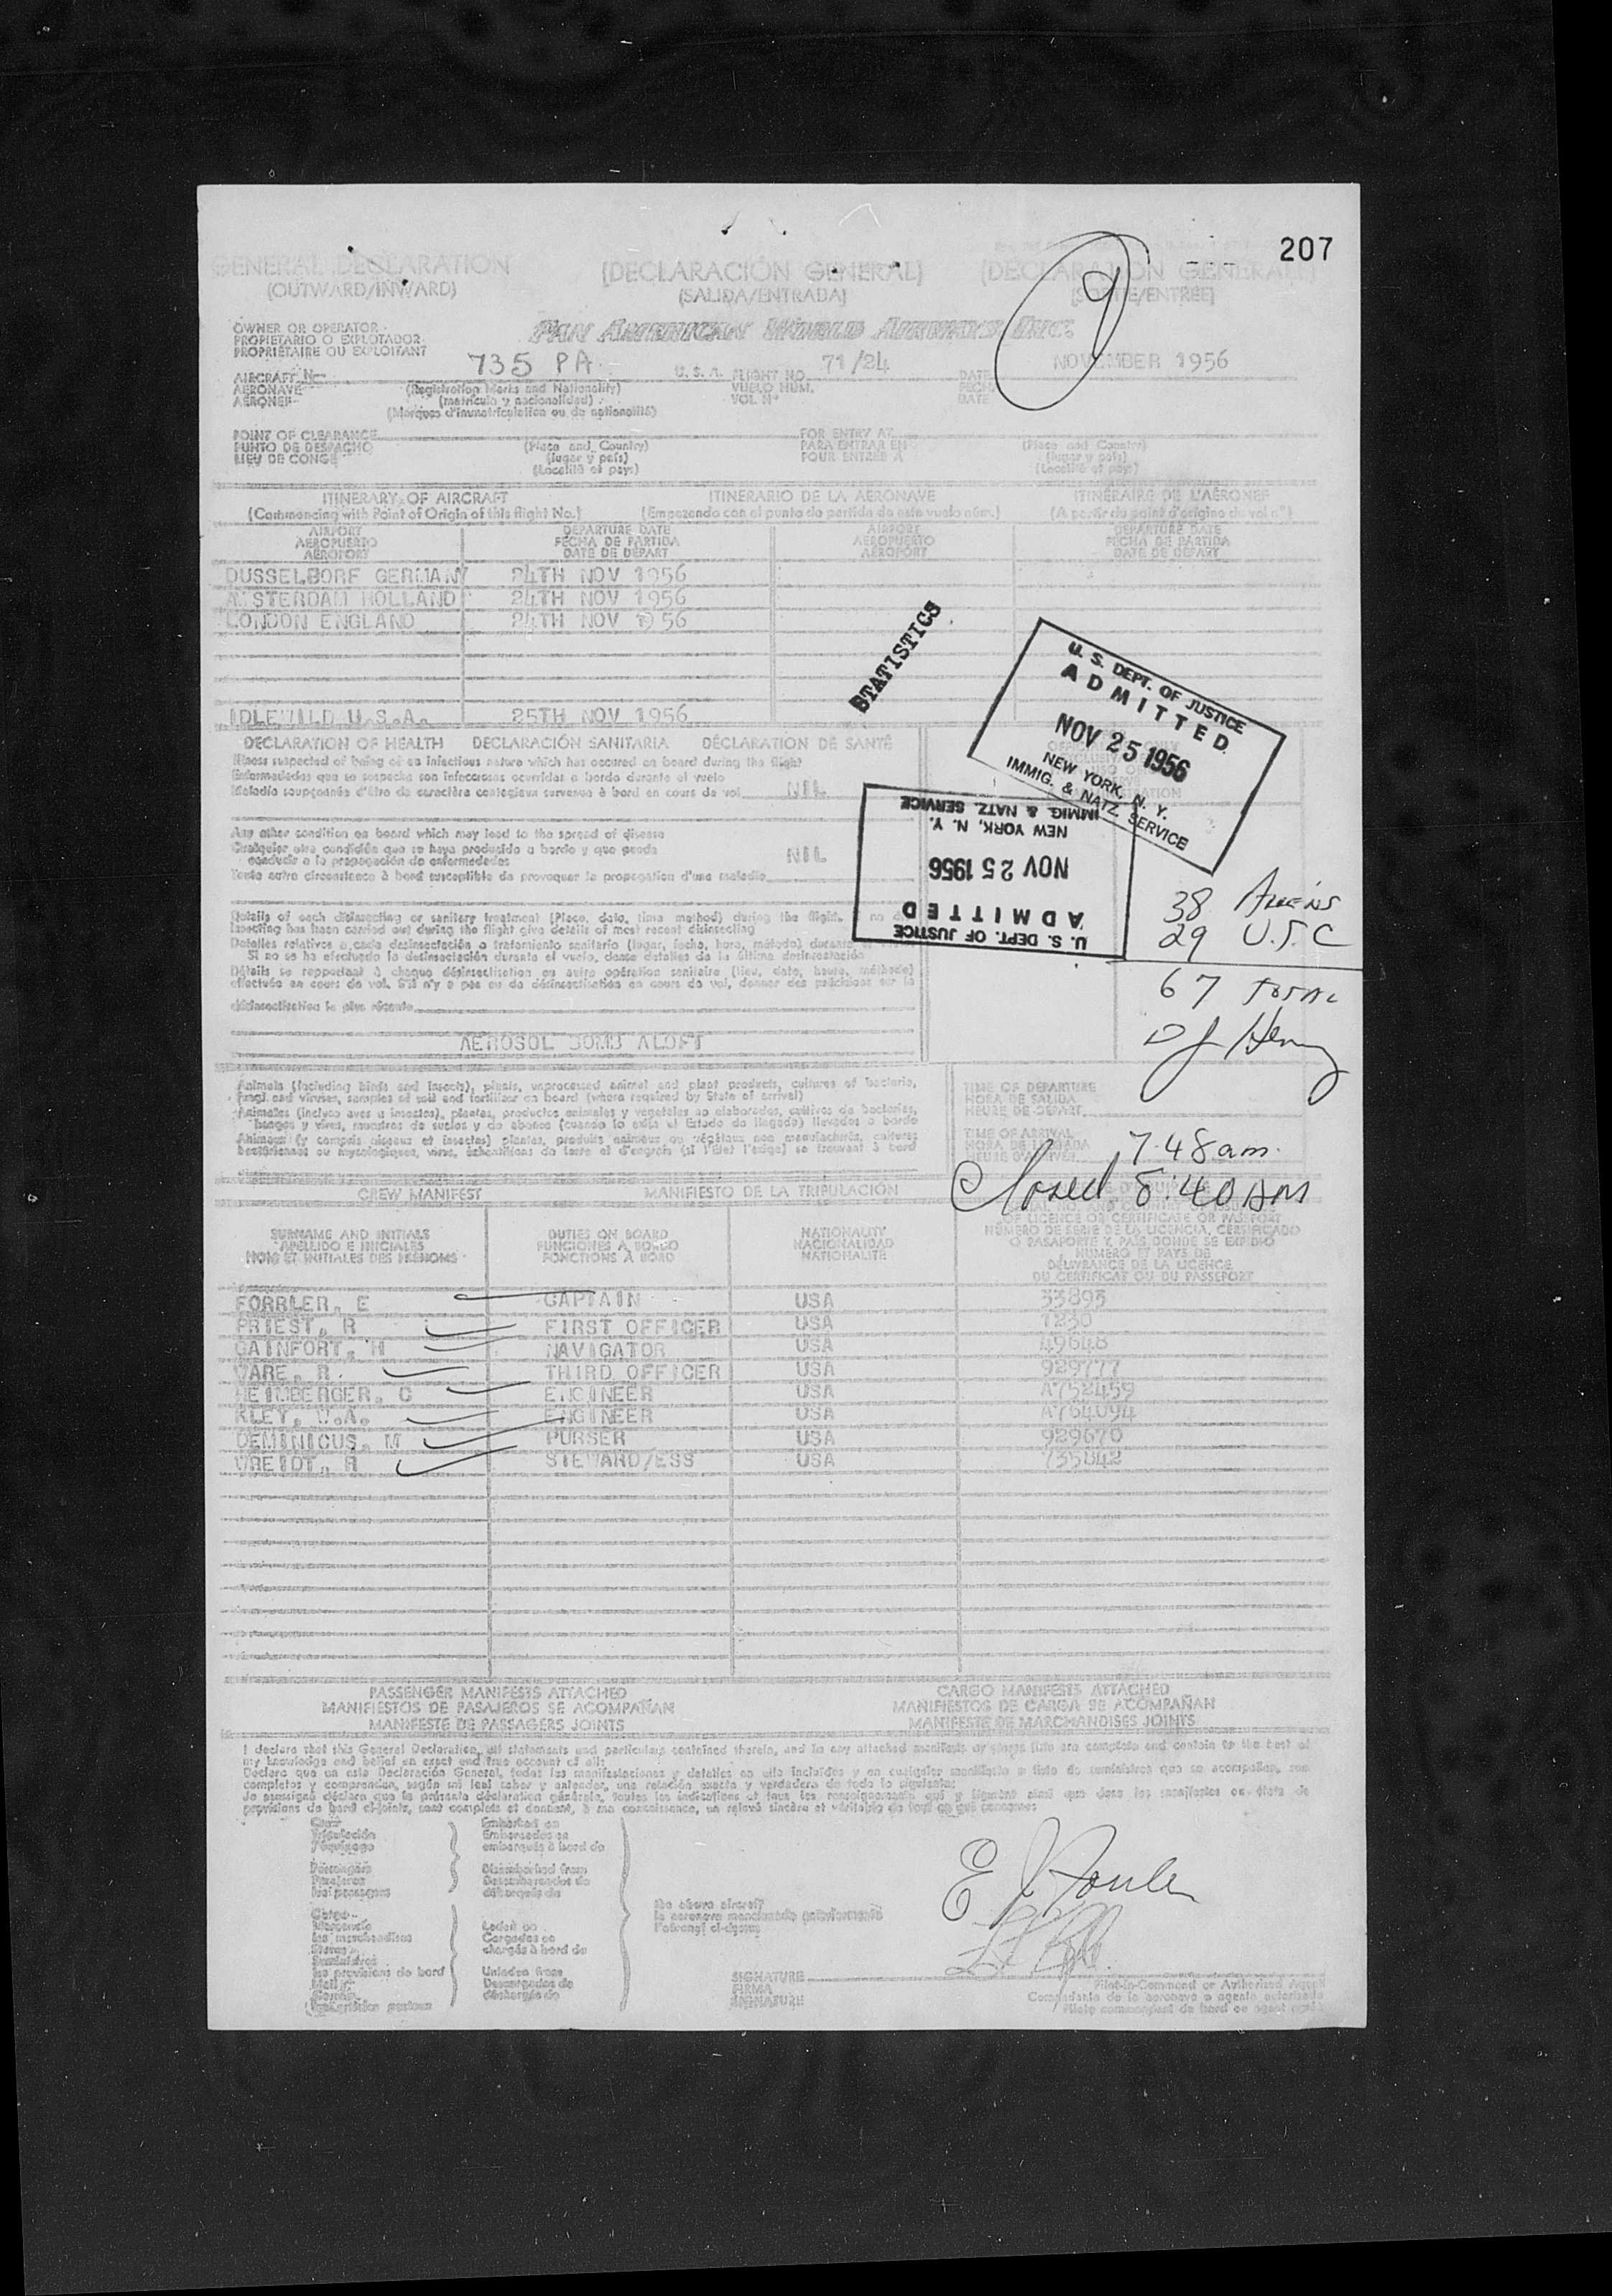 207
GENERAL DECLARATION (DECLARACIÓN GENERAL) (DECLARATION GENERALE)
(OUTWARD/INWARD) (SALIDA/ENTRADA) (SORTIE/ENTRÉE)
9
OWNER OR OPERATOR PAN AMERICAN WORLD AIRWAYS INC.
PROPIETARIO O EXPLOTADOR
PROPRIÉTAIRE OU EXPLOITANT
735 PA U. S. A. FLIGHT NO. 71/24 DATE NOVEMBER 1956
AIRCRAFT N-
AERONAVE (Registration Marks and Nationality) VUELO NÚM. FECHA
AÉRONEF (matrícula y nacionalidad) VOL Nº DATE
(Marques d'immatriculation ou de nationalité)
POINT OF CLEARANCE FOR ENTRY AT
PUNTO DE DESPACHO (Place and Country) PARA ENTRAR EN (Place and Country)
LIEU DE CONGÉ (lugar y país) POUR ENTRÉE À (lugar y país)
(Localité et pays) (Localité et pays)
ITINERARY OF AIRCRAFT ITINERARIO DE LA AERONAVE ITINÉRAIRE DE L'AÉRONEF
(Commencing with Point of Origin of this flight No.) (Empezando con el punto de partida de este vuelo núm.) (A partir du point d'origine du vol nº)
AIRPORT DEPARTURE DATE AIRPORT DEPARTURE DATE
AEROPUERTO FECHA DE PARTIDA AEROPUERTO FECHA DE PARTIDA
AÉROPORT DATE DE DÉPART AÉROPORT DATE DE DÉPART
DUSSELDORF GERMANY 24TH NOV 1956
AMSTERDAM HOLLAND 24TH NOV 1956
LONDON ENGLAND 24TH NOV 1956
STATISTICS
IDLEWILD U.S.A. 25TH NOV 1956
U. S. DEPT. OF JUSTICE
ADMITTED
NOV 25 1956
NEW YORK, N. Y.
IMMIG. & NATZ. SERVICE
DECLARATION OF HEALTH DECLARACIÓN SANITARIA DÉCLARATION DE SANTÉ
Illness suspected of being of an infectious nature which has occured on board during the flight
Enfermedades que se sospecha son infecciosas ocurridas a bordo durante el vuelo
Maladie soupçonnée d'être de caractère contagieux survenue à bord en cours de vol NIL
U. S. DEPT. OF JUSTICE
ADMITTED
NOV 25 1956
NEW YORK, N. Y.
IMMIG. & NATZ. SERVICE
Any other condition on board which may lead to the spread of disease
Cualquier otra condición que se haya producido a bordo y que pueda
conducir a la propagación de enfermedades NIL
Toute autre circonstance à bord susceptible de provoquer la propagation d'une maladie
38 Aliens
29 U.S.C
67 Total
D J Henry
Details of each disinsecting or sanitary treatment (Place, date, time method) during the flight. If no
insecting has been carried out during the flight give details of most recent disinsecting
Detalles relativos a cada desinsectación o tratamiento sanitario (lugar, fecha, hora, método) durante
Si no se ha efectuado la desinsectación durante el vuelo, dense detalles de la última desinsectación
Détails se rapportant à chaque désinsectisation ou autre opération sanitaire (lieu, date, heure, méthode)
effectuée en cours de vol. S'il n'y a pas eu de désinsectisation en cours de vol, donner des précisions sur la
désinsectisation la plus récente
AEROSOL BOMB ALOFT
Animals (including birds and insects), plants, unprocessed animal and plant products, cultures of bacteria,
fungi and viruses, samples of soil and fertilizer on board (where required by State of arrival)
Animales (incluso aves e insectos), plantas, productos animales y vegetales no elaborados, cultivos de bacterias,
hongos y virus, muestras de suelos y de abonos (cuando lo exija el Estado de llegada) llevados a bordo
Animaux (y compris oiseaux et insectes) plantes, produits animaux ou végétaux non manufacturés, cultures
bactériennes ou mycologiques, virus, échantillons de terre et d'engrais (si l'État l'exige) se trouvant à bord
TIME OF DEPARTURE
HORA DE SALIDA
HEURE DE DÉPART
TIME OF ARRIVAL
HORA DE LLEGADA 7.48 am.
HEURE D'ARRIVÉE
Closed 8:40 AM
CREW MANIFEST MANIFIESTO DE LA TRIPULACIÓN
SURNAME AND INITIALS DUTIES ON BOARD NATIONALITY OF LICENCE OR CERTIFICATE OR PASSPORT
APELLIDO E INICIALES FUNCIONES A BORDO NACIONALIDAD NÚMERO DE SERIE DE LA LICENCIA, CERTIFICADO
NOM ET INITIALES DES PRÉNOMS FONCTIONS À BORD NATIONALITÉ O PASAPORTE Y PAÍS DONDE SE EXPIDIÓ
NUMÉRO ET PAYS DE
DÉLIVRANCE DE LA LICENCE
DU CERTIFICAT OU DU PASSEPORT
E CAPTAIN USA 33893
PRIEST, R FIRST OFFICER USA 7230
GAINFORT, H NAVIGATOR USA 49648
WARE, R. THIRD OFFICER USA 929777
HEIMBERGER, C ENGINEER USA A752459
KLEY, W.A. ENGINEER USA A764094
DEMINICUS, M PURSER USA 929670
WREIDT, R STEWARD/ESS USA 735842
PASSENGER MANIFESTS ATTACHED CARGO MANIFESTS ATTACHED
MANIFIESTOS DE PASAJEROS SE ACOMPAÑAN MANIFIESTOS DE CARGA SE ACOMPAÑAN
MANIFESTE DE PASSAGERS JOINTS MANIFESTE DE MARCHANDISES JOINTS
I declare that this General Declaration, all statements and particulars contained therein, and in any attached manifests or stores lists are complete and contain to the best of
my knowledge and belief an exact and true account of all:
Declaro que en esta Declaración General, todas las manifestaciones y detalles en ella incluidos y en cualquier manifiesto o lista de suministros que se acompañen, son
completos y comprenden, según mi leal saber y entender, una relación exacta y verdadera de todo lo siguiente:
Je soussigné déclare que la présente déclaration générale, toutes les indications et tous les renseignements qui y figurent ainsi que dans les manifestes ou listes de
provisions de bord ci-joints, sont complets et donnent, à ma connaissance, un relevé sincère et véritable de tout ce qui concerne:
Crew Embarked on
Tripulación Embarcados en
l'équipage embarqués à bord de
Passengers Disembarked from
Pasajeros Desembarcados de
les passagers débarqués de
the above aircraft
la aeronave mencionada anteriormente
l'aéronef ci-dessus
Cargo
Mercancía Laden on
les marchandises Cargados en
Stores chargés à bord de
Suministros
les provisions de bord Unladen from
Descargados de
déchargés de
SIGNATURE
FIRMA
SIGNATURE
Pilot-in-Command or Authorised Agent
Comandante de la aeronave o agente autorizado
Pilote commandant de bord ou agent